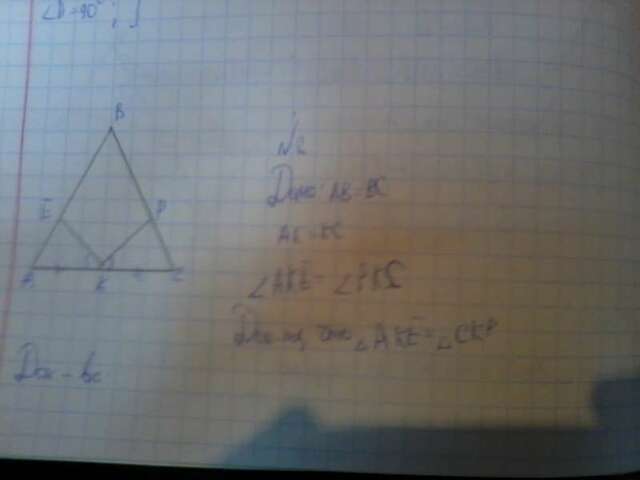 ∠D=90°;
B
E P
A K C
№2
Дано: AB=BC
AK=KC
∠AKE=∠PKC
Док-ть, что ∠AKE=∠CKP
Док-во